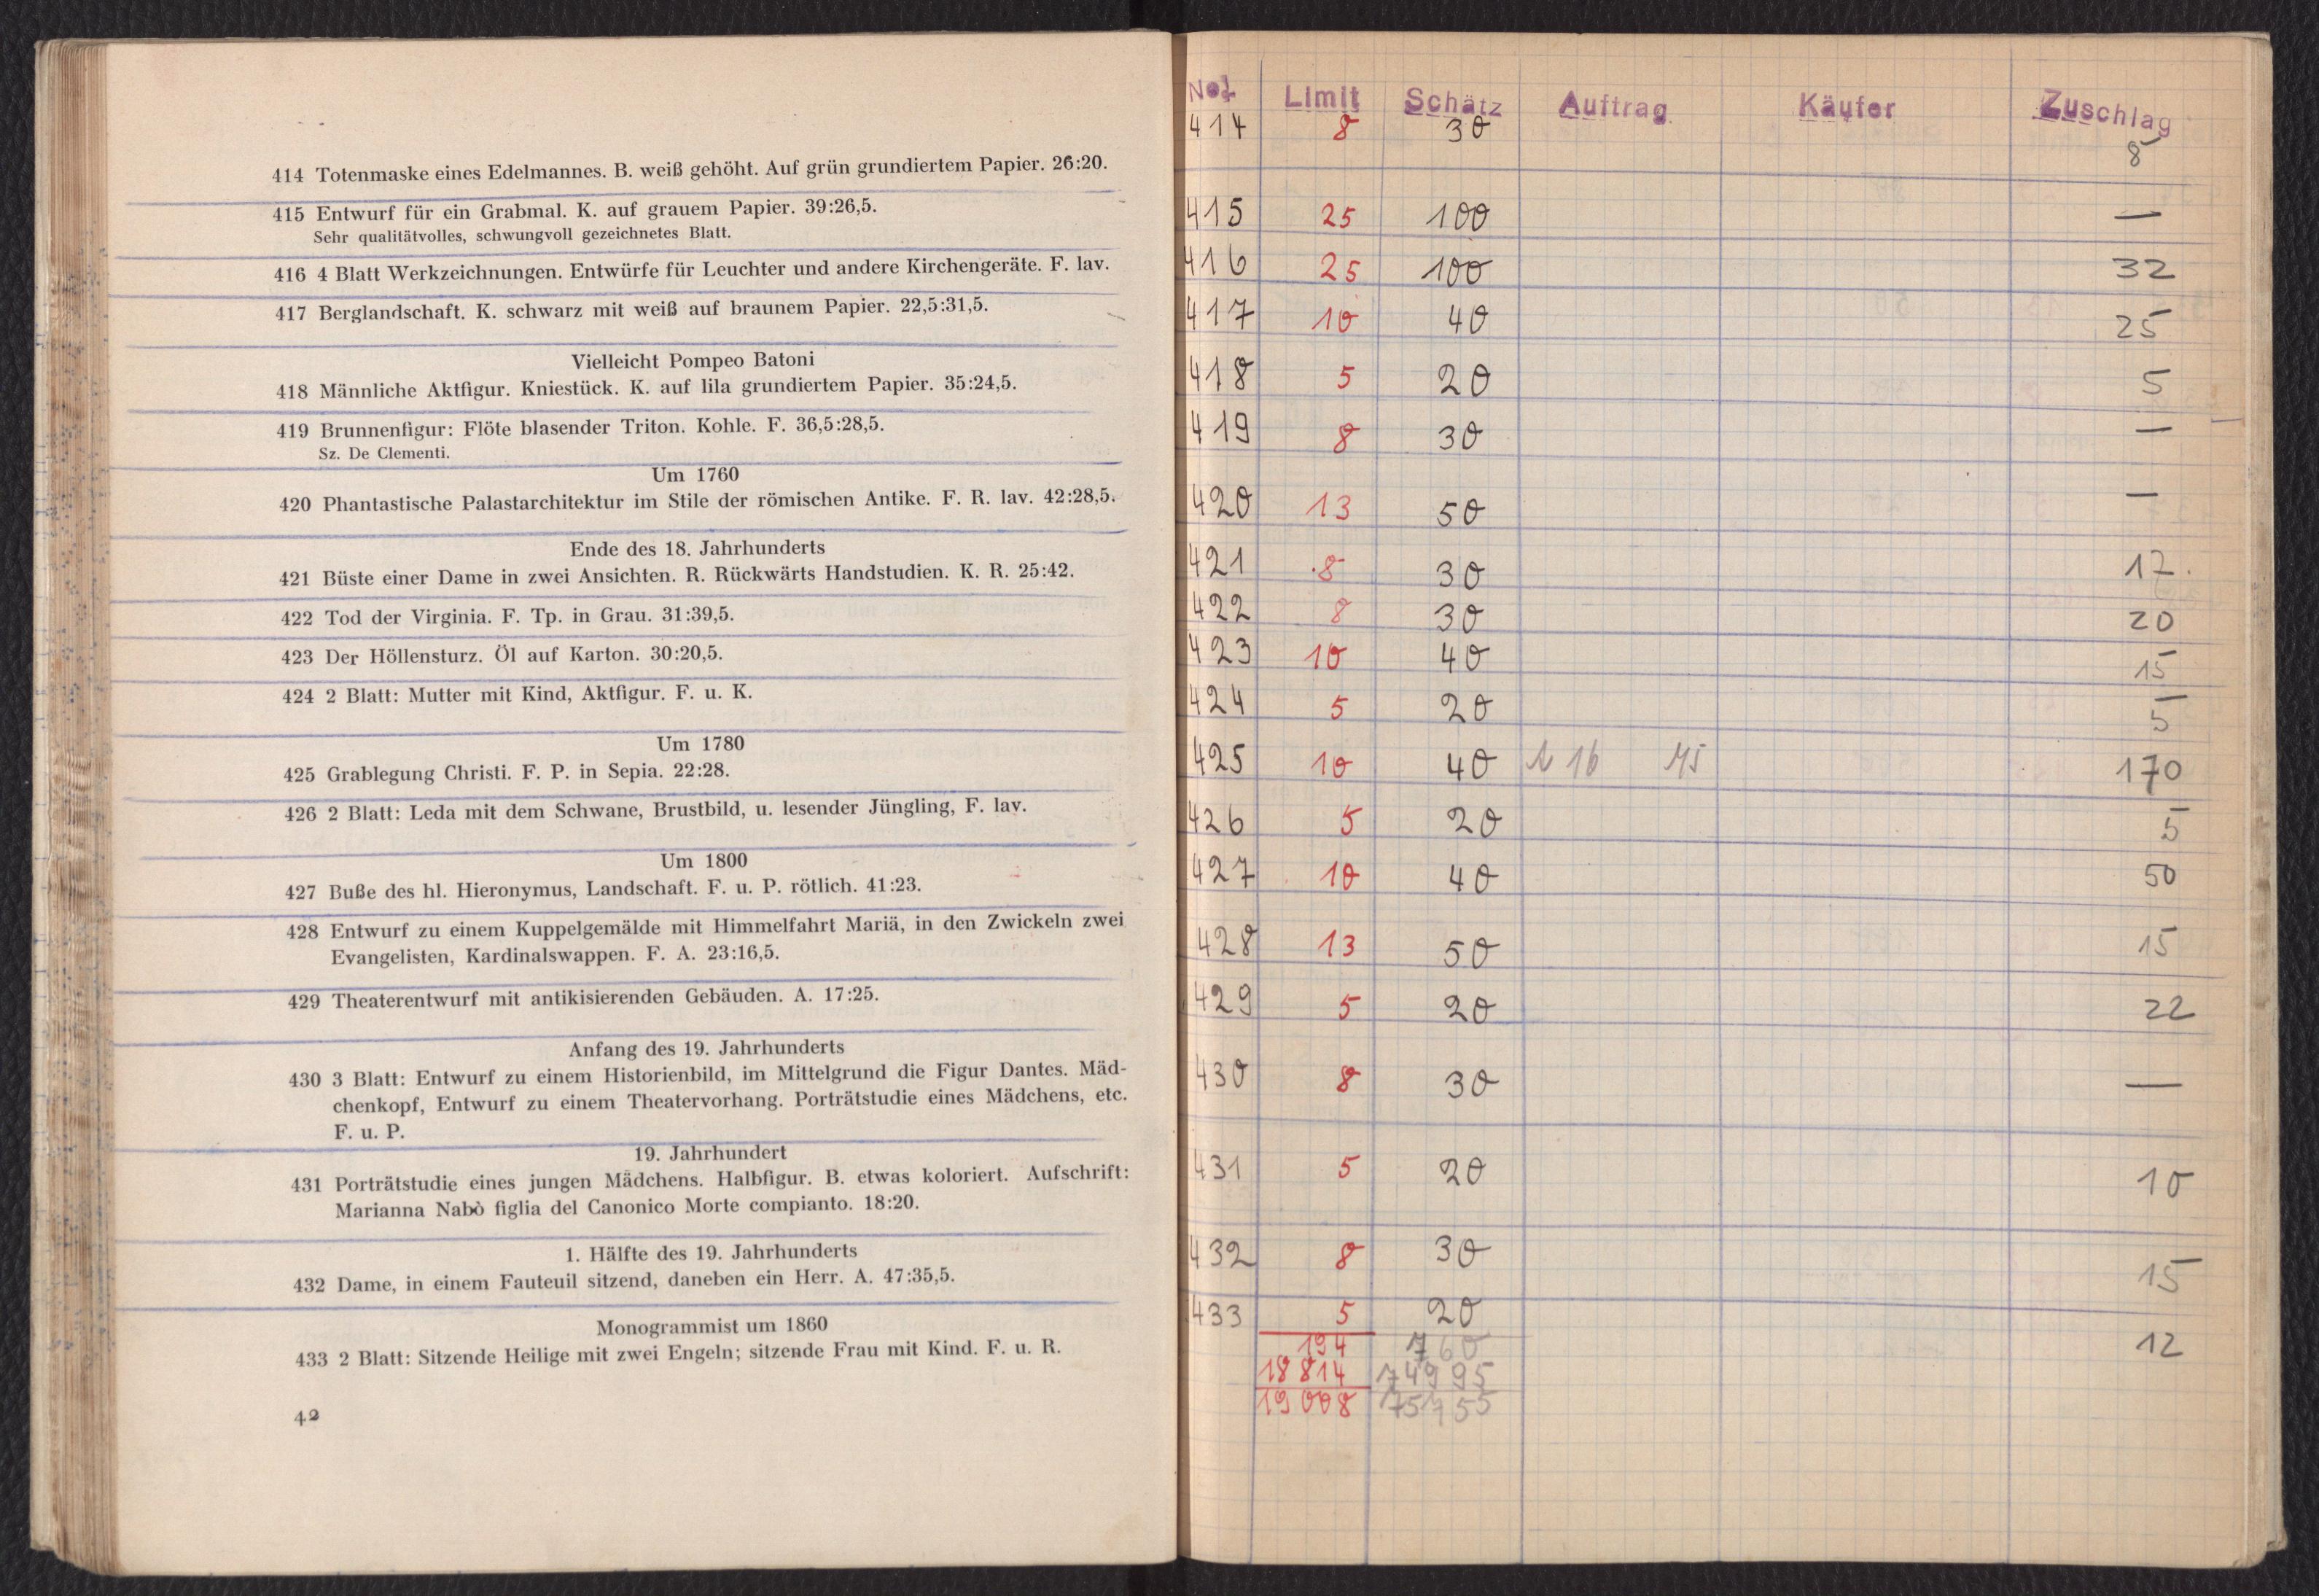 414 Totenmaske eines Edelmannes. B. weiß gehöht. Auf grün grundiertem Papier. 26:20.
415 Entwurf für ein Grabmal. K. auf grauem Papier. 39:26,5.
Sehr qualitätvolles, schwungvoll gezeichnetes Blatt.
416 4 Blatt Werkzeichnungen. Entwürfe für Leuchter und andere Kirchengeräte. F. lav.
417 Berglandschaft. K. schwarz mit weiß auf braunem Papier. 22,5:31,5.
Vielleicht Pompeo Batoni
418 Männliche Aktfigur. Kniestück. K. auf lila grundiertem Papier. 35:24,5.
419 Brunnenfigur: Flöte blasender Triton. Kohle. F. 36,5:28,5.
Sz. De Clementi.
Um 1760
420 Phantastische Palastarchitektur im Stile der römischen Antike. F. R. lav. 42:28,5.
Ende des 18. Jahrhunderts
421 Büste einer Dame in zwei Ansichten. R. Rückwärts Handstudien. K. R. 25:42.
422 Tod der Virginia. F. Tp. in Grau. 31:39,5.
423 Der Höllensturz. Öl auf Karton. 30:20,5.
424 2 Blatt: Mutter mit Kind, Aktfigur. F. u. K.
Um 1780
425 Grablegung Christi. F. P. in Sepia. 22:28.
426 2 Blatt: Leda mit dem Schwane, Brustbild, u. lesender Jüngling, F. lav.
Um 1800
427 Buße des hl. Hieronymus, Landschaft. F. u. P. rötlich. 41:23.
428 Entwurf zu einem Kuppelgemälde mit Himmelfahrt Mariä, in den Zwickeln zwei
Evangelisten, Kardinalswappen. F. A. 23:16,5.
429 Theaterentwurf mit antikisierenden Gebäuden. A. 17:25.
Anfang des 19. Jahrhunderts
430 3 Blatt: Entwurf zu einem Historienbild, im Mittelgrund die Figur Dantes. Mäd-
chenkopf, Entwurf zu einem Theatervorhang. Porträtstudie eines Mädchens, etc.
F. u. P.
19. Jahrhundert
431 Porträtstudie eines jungen Mädchens. Halbfigur. B. etwas koloriert. Aufschrift:
Marianna Nabò figlia del Canonico Morte compianto. 18:20.
1. Hälfte des 19. Jahrhunderts
432 Dame, in einem Fauteuil sitzend, daneben ein Herr. A. 47:35,5.
Monogrammist um 1860
433 2 Blatt: Sitzende Heilige mit zwei Engeln; sitzende Frau mit Kind. F. u. R.
42
Limit Schätz Auftrag Käufer Zuschlag
414 8 30 8
415 25 100 —
416 25 100 32
417 10 40 25
418 5 20 5
419 8 30 —
420 13 50 —
421 8 30 17
422 8 30 20
423 10 40 15
424 5 20 5
425 10 40 16 170
426 5 20 5
427 10 40 50
428 13 50 15
429 5 20 22
430 8 30 —
431 5 20 10
432 8 30 15
433 5 20 12
194 760
18814 74995
19008 75755